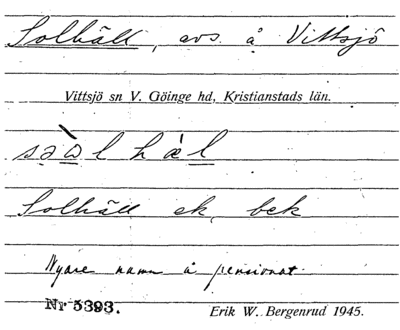 Solhäll, avs. å Vittsjö
Vittsjö sn V. Göinge hd, Kristianstads län.
səὼl hæ̀l
Solhäll ek, bek
Nyare namn å pensionat.
Nr 5393.
Erik W. Bergenrud 1945.